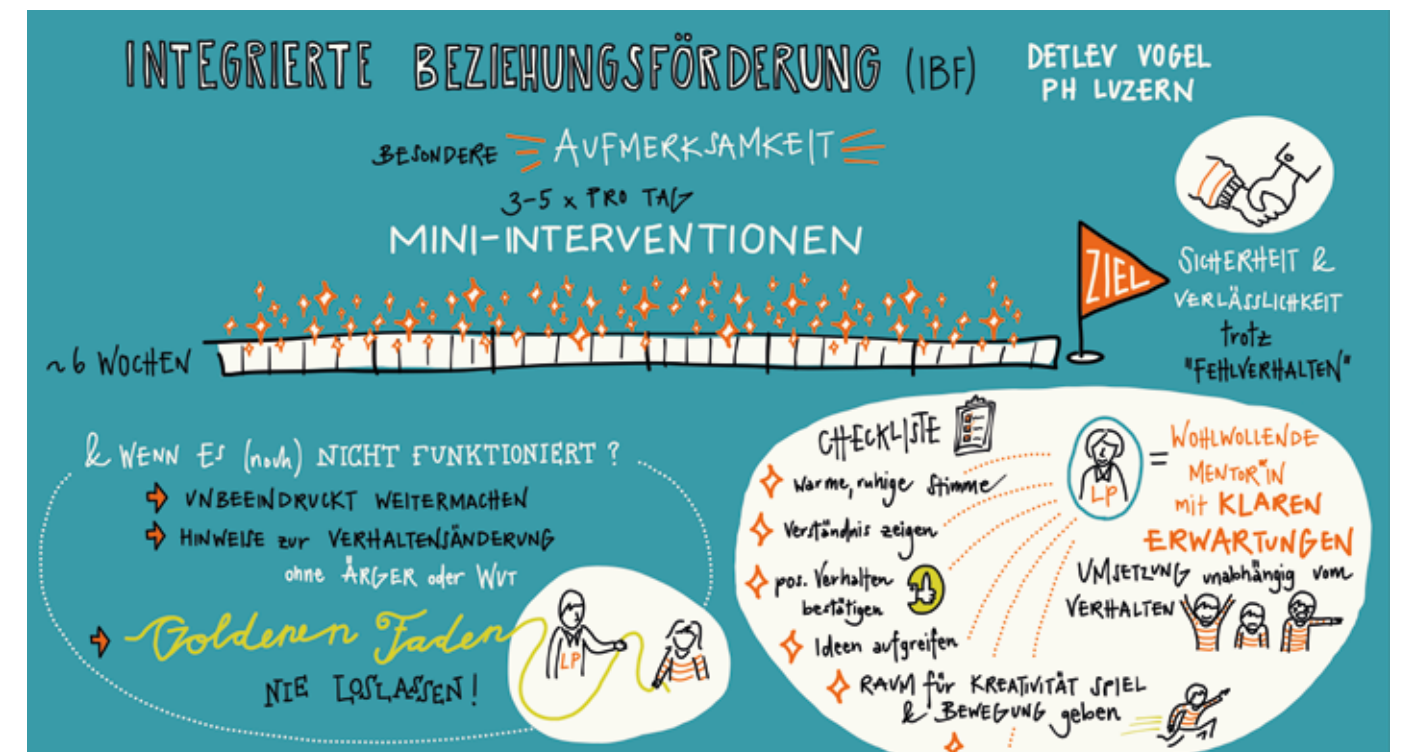 INTEGRIERTE BEZIEHUNGSFÖRDERUNG (IBF)
DETLEV VOGEL
PH LUZERN
BESONDERE AUFMERKSAMKEIT
3-5 x PRO TAG
MINI-INTERVENTIONEN
~6 WOCHEN
ZIEL
SICHERHEIT &
VERLÄSSLICHKEIT
trotz
"FEHLVERHALTEN"
& WENN ES (noch) NICHT FUNKTIONIERT?
UNBEEINDRUCKT WEITERMACHEN
HINWEISE zur VERHALTENSÄNDERUNG
ohne ÄRGER oder WUT
Goldenen Faden
NIE LOSLASSEN!
LP
CHECKLISTE
warme, ruhige Stimme
Verständnis zeigen
pos. Verhalten
bestätigen
Ideen aufgreifen
RAUM für KREATIVITÄT SPIEL
& BEWEGUNG geben
LP
= WOHLWOLLENDE
MENTOR*IN
mit KLAREN
ERWARTUNGEN
UMSETZUNG unabhängig vom
VERHALTEN